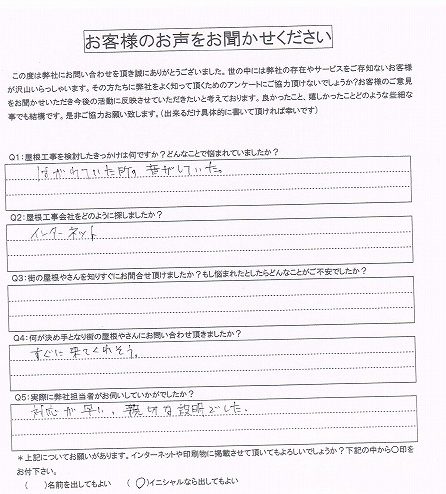 お客様のお声をお聞かせください
この度は弊社にお問い合わせを頂き誠にありがとうございました。世の中には弊社の存在やサービスをご存知ないお客様
が沢山いらっしゃいます。その方たちに弊社をよく知って頂くためのアンケートにご協力頂けないでしょうか?お客様のご意見
をお聞かせいただき今後の活動に反映させていただきたいと考えております。良かったこと、嬉しかったことどのような些細な
事でも結構です。是非ご協力お願い致します。(出来るだけ具体的に書いて頂ければ幸いです)
Q1:屋根工事を検討したきっかけは何ですか?どんなことで悩まれていましたか?
いた所。音がしていた。
Q2:屋根工事会社をどのように探しましたか?
インターネット
Q3:街の屋根やさんを知りすぐにお問合せ頂けましたか?もし悩まれたとしたらどんなことがご不安でしたか?
Q4:何が決め手となり街の屋根やさんにお問い合わせ頂きましたか?
すぐに来てくれそう。
Q5:実際に弊社担当者がお伺いしていかがでしたか?
対応が早い、親切な説明でした。
*上記についてお願いがあります。インターネットや印刷物に掲載させて頂いてもよろしいでしょうか?下記の中から〇印
をお付下さい。
( )名前を出してもよい (〇)イニシャルなら出してもよい